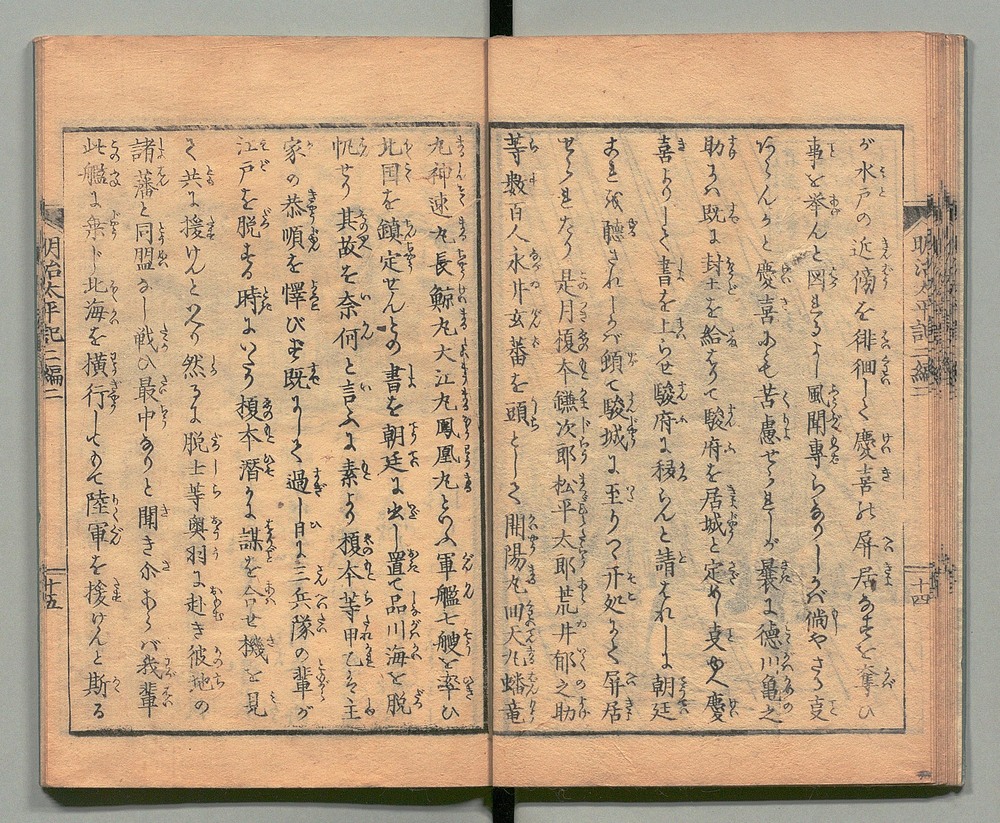 が水戸の近傍を徘徊して慶喜の屏居なすを奪ひ
事を挙んと図まるよし風聞専らなりしかバ倘やさる支
あらんかと慶喜にも苦慮せられしが曩に徳川亀之
助にハ既に封土を給はりて駿府を居城と定めし支ゆへ慶
喜よりして書を上らせ駿府に移らんと請はれしに朝廷
これを聴されしかバ頓て駿城に至りつゝ开処にて屏居
せられたり是月榎本鎌次郎松平太郎荒井郁之助
等数百人永井玄蕃を頭として開陽丸回天丸蟠竜
明治太平記二編二
十四
丸神速丸長鯨丸大江丸鳳凰丸といふ軍艦七艘を率ひ
北国を鎮定せんとの書を朝廷に出し置て品川海を脱
帆せり其故を奈何と言ふに素より榎本等甲乙ハ主
家の恭順を懌びず既にして過し日に三兵隊の輩が
江戸を脱する時にいたり榎本潜かに謀を合せ機を見
て共に援けんといへり然るに脱士等奥羽に赴き彼地の
諸藩と同盟なし戦ひ最中なりと聞き尒あらバ我輩
此艦に乗じ北海を横行してもて陸軍を援けんと斯る
明治太平記二編二
十五